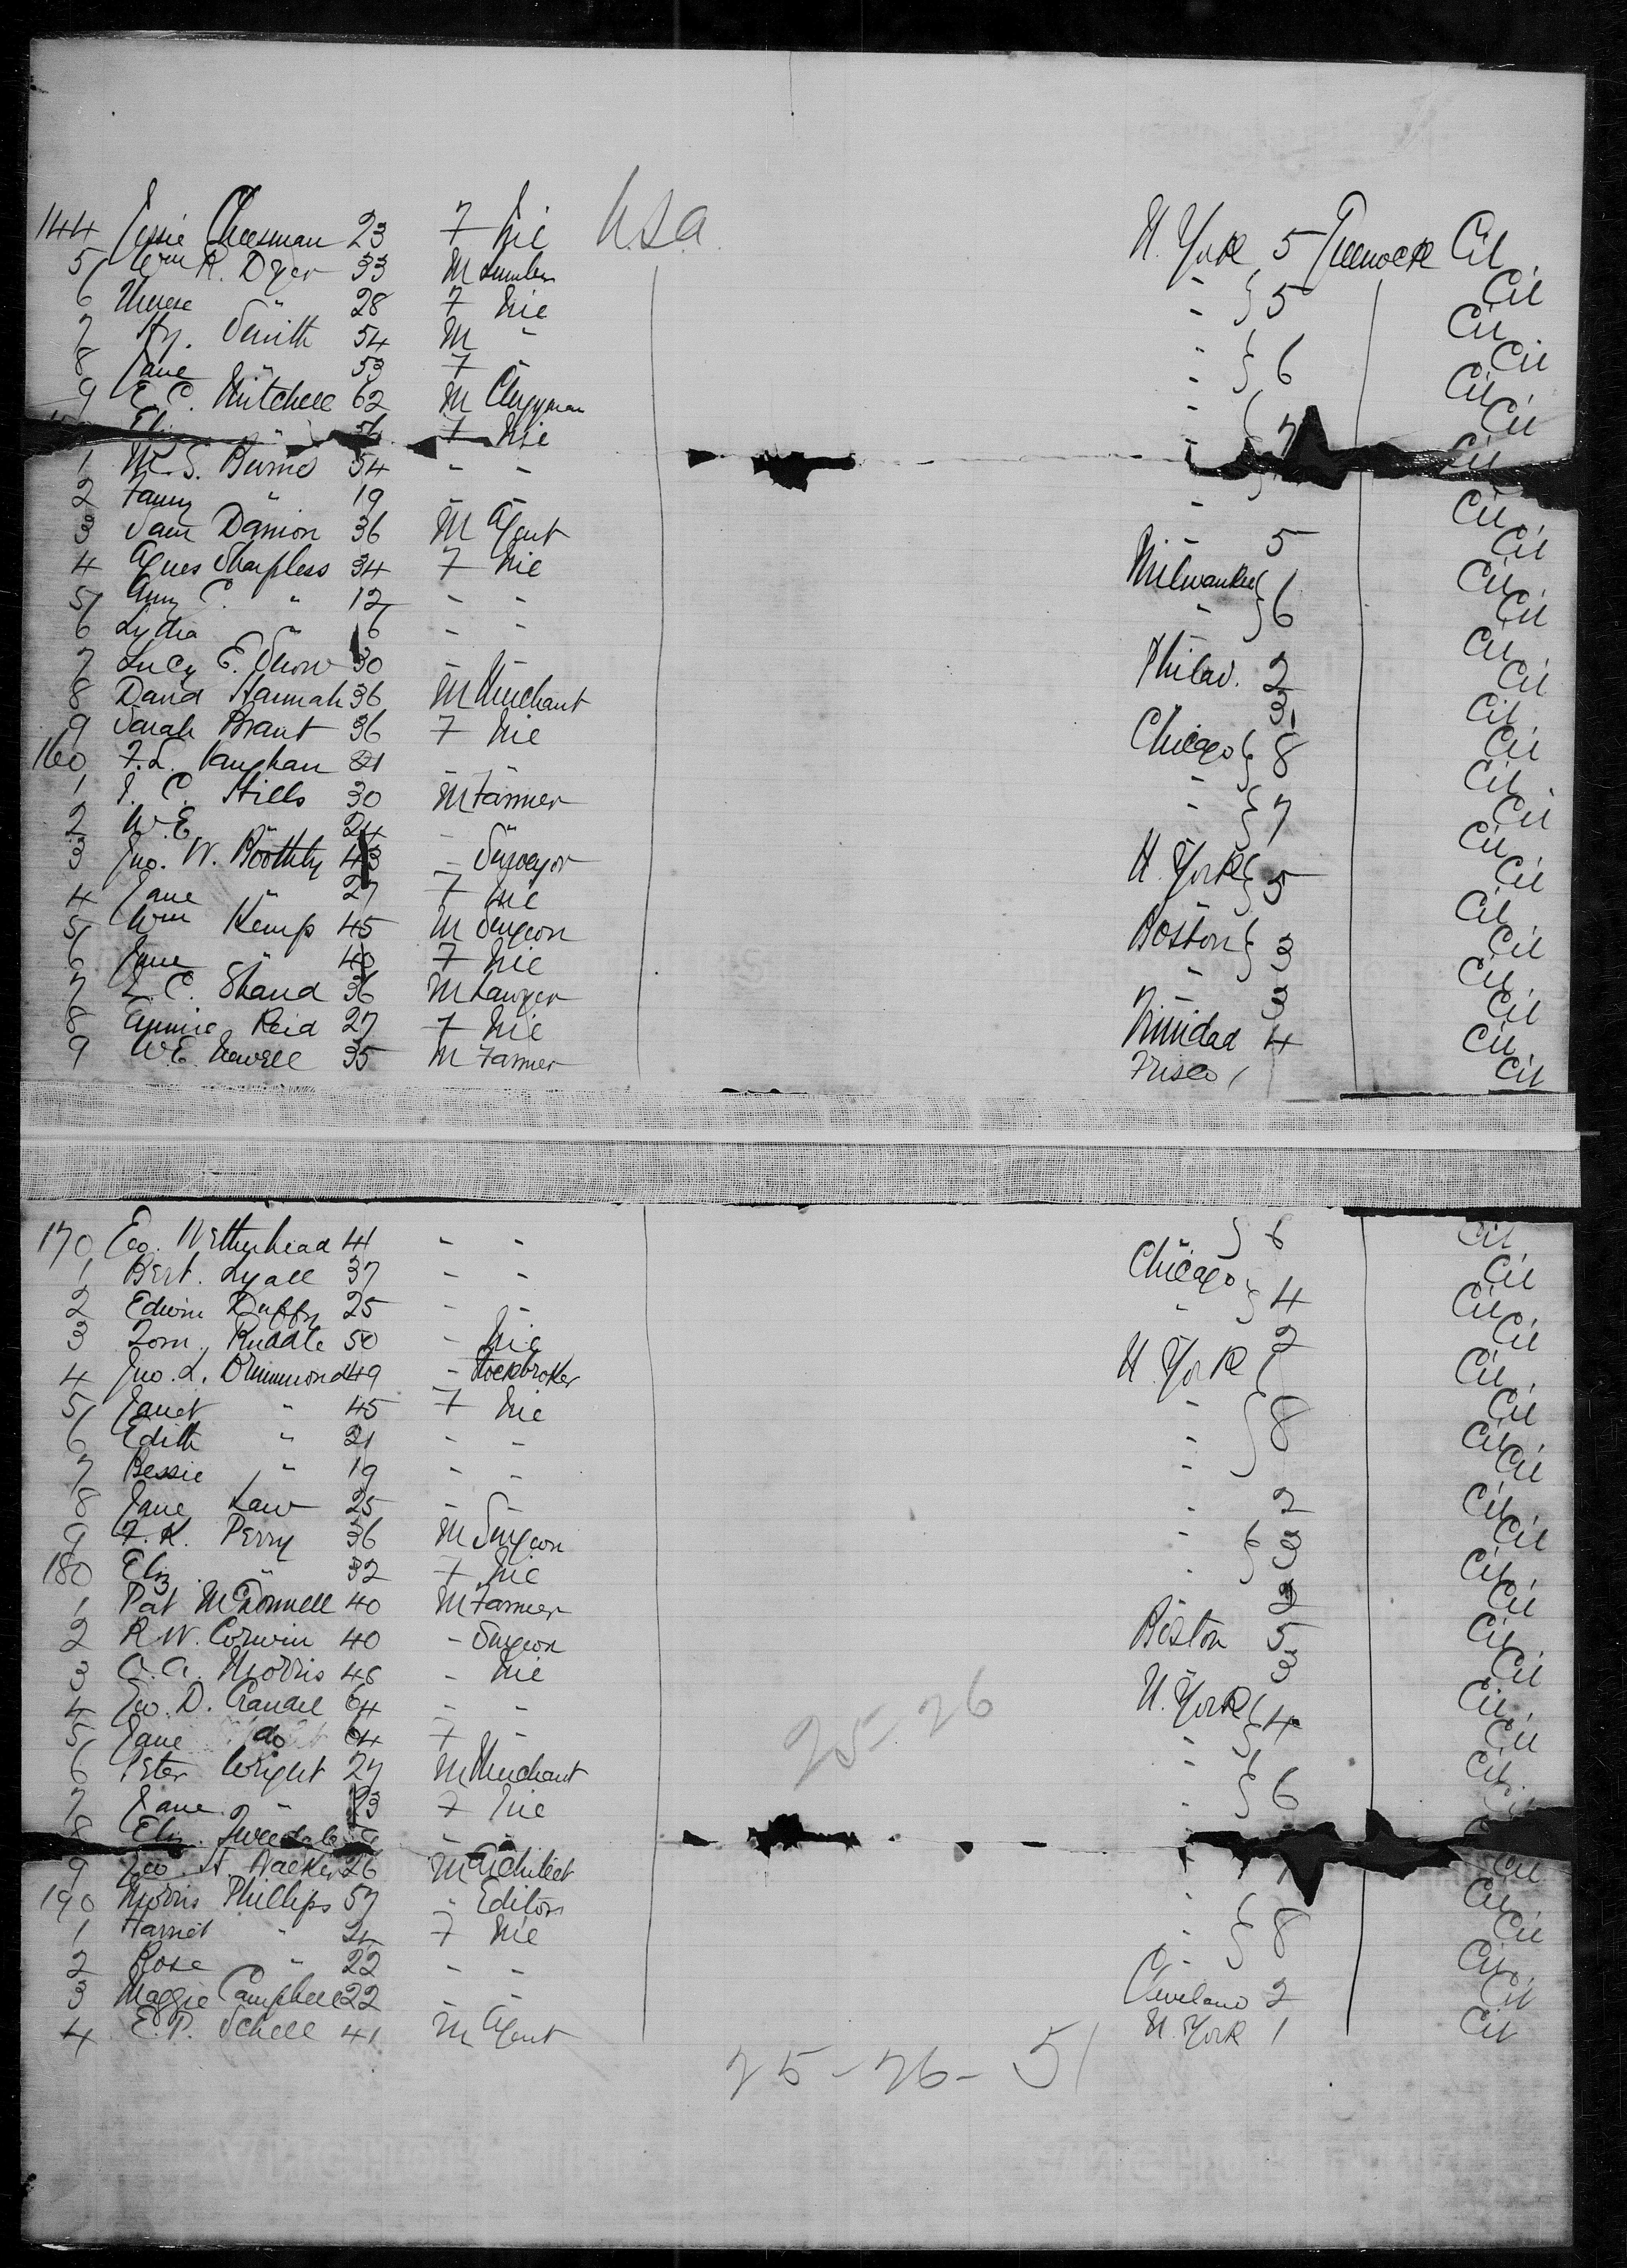 144 Jessie Cheesman 23 F Nil U.S.A. N. York 5 Greenock Cit
5 Wm R. Dyer 33 M Lumber " Cit
6 " 28 F Nil " } 5 Cit
7 Hy. Smith 54 M " " Cit
8 Jane " 53 F " " } 6 Cit
9 E. C. Mitchell 62 M Clergyman " Cit
F Nil " 7 Cit
1 M. S. Burns 54 " "
2 Fanny " 19 " " " Cit
3 Sam Damon 36 M Agent " 5 Cit
4 Agnes Sharpless 34 F Nil Milwaukee Cit
5 Amy C. " 12 " " " } 6 Cit
6 Lydia " 6 " " Cit
7 Lucy E. Snow 30 " " Philad. 2 Cit
8 David Hannah 36 M Merchant " 3 Cit
9 Sarah Brant 36 F Nil Chicago } 8 Cit
160 F. L. Vaughan " " Cit
1 J. C. Hills 30 M Farmer " } 7 Cit
2 W. E. " 24 " " Cit
3 Jno. W. Boothby 43 " Surveyor N. York } 5 Cit
4 Jane " 27 F Nil " Cit
5 Wm Kemp 45 M Surgeon Boston } 3 Cit
6 Jane " 40 F Nil " Cit
7 L. C. Shand 36 M Lawyer " 3 Cit
8 Annie Reid 27 F Nil Trinidad 4 Cit
9 W. E. Newell 35 M Farmer Frisco 1 Cit
170 Geo. Wetherhead 44 " " } 6 Cit
1 Bert. Lyall 37 " " Chicago Cit
2 Edwin Duffy 25 " " " } 4 Cit
3 Tom Ruddle 50 " Nil " 2 Cit
4 Jno. L. Drummond 49 " Stockbroker N. York Cit
5 Janet " 45 F Nil " } 8 Cit
6 Edith " 21 " " " Cit
7 Bessie " 19 " " " Cit
8 Jane Law 25 " " " 2 Cit
9 F. K. Perry 36 M Surgeon " } 3 Cit
180 Eliz. " 32 F Nil " Cit
1 Pat McDonnell 40 M Farmer " 2 Cit
2 R. W. Corwin 40 " Surgeon Boston 5 Cit
3 O. A. Morris 48 " Nil " 3 Cit
4 Geo. D. Crandel 64 " " N. York } 4 Cit
5 Jane do 64 F " " Cit
6 Peter Wright 27 M Merchant " } 6 Cit
7 Jane " 23 F Nil "
8 Eliz. Tweedale " "
9 Geo. H. 26 M Architect " Cit
190 Morris Phillips 57 " Editor " } 8 Cit
1 Harriet " F Nil " Cit
2 Rose " 22 " " Cit
3 Maggie Campbell 22 " " Cleveland 2 Cit
4 E. P. Schell 41 M Agent N. York 1 Cit
25-26
25-26-51